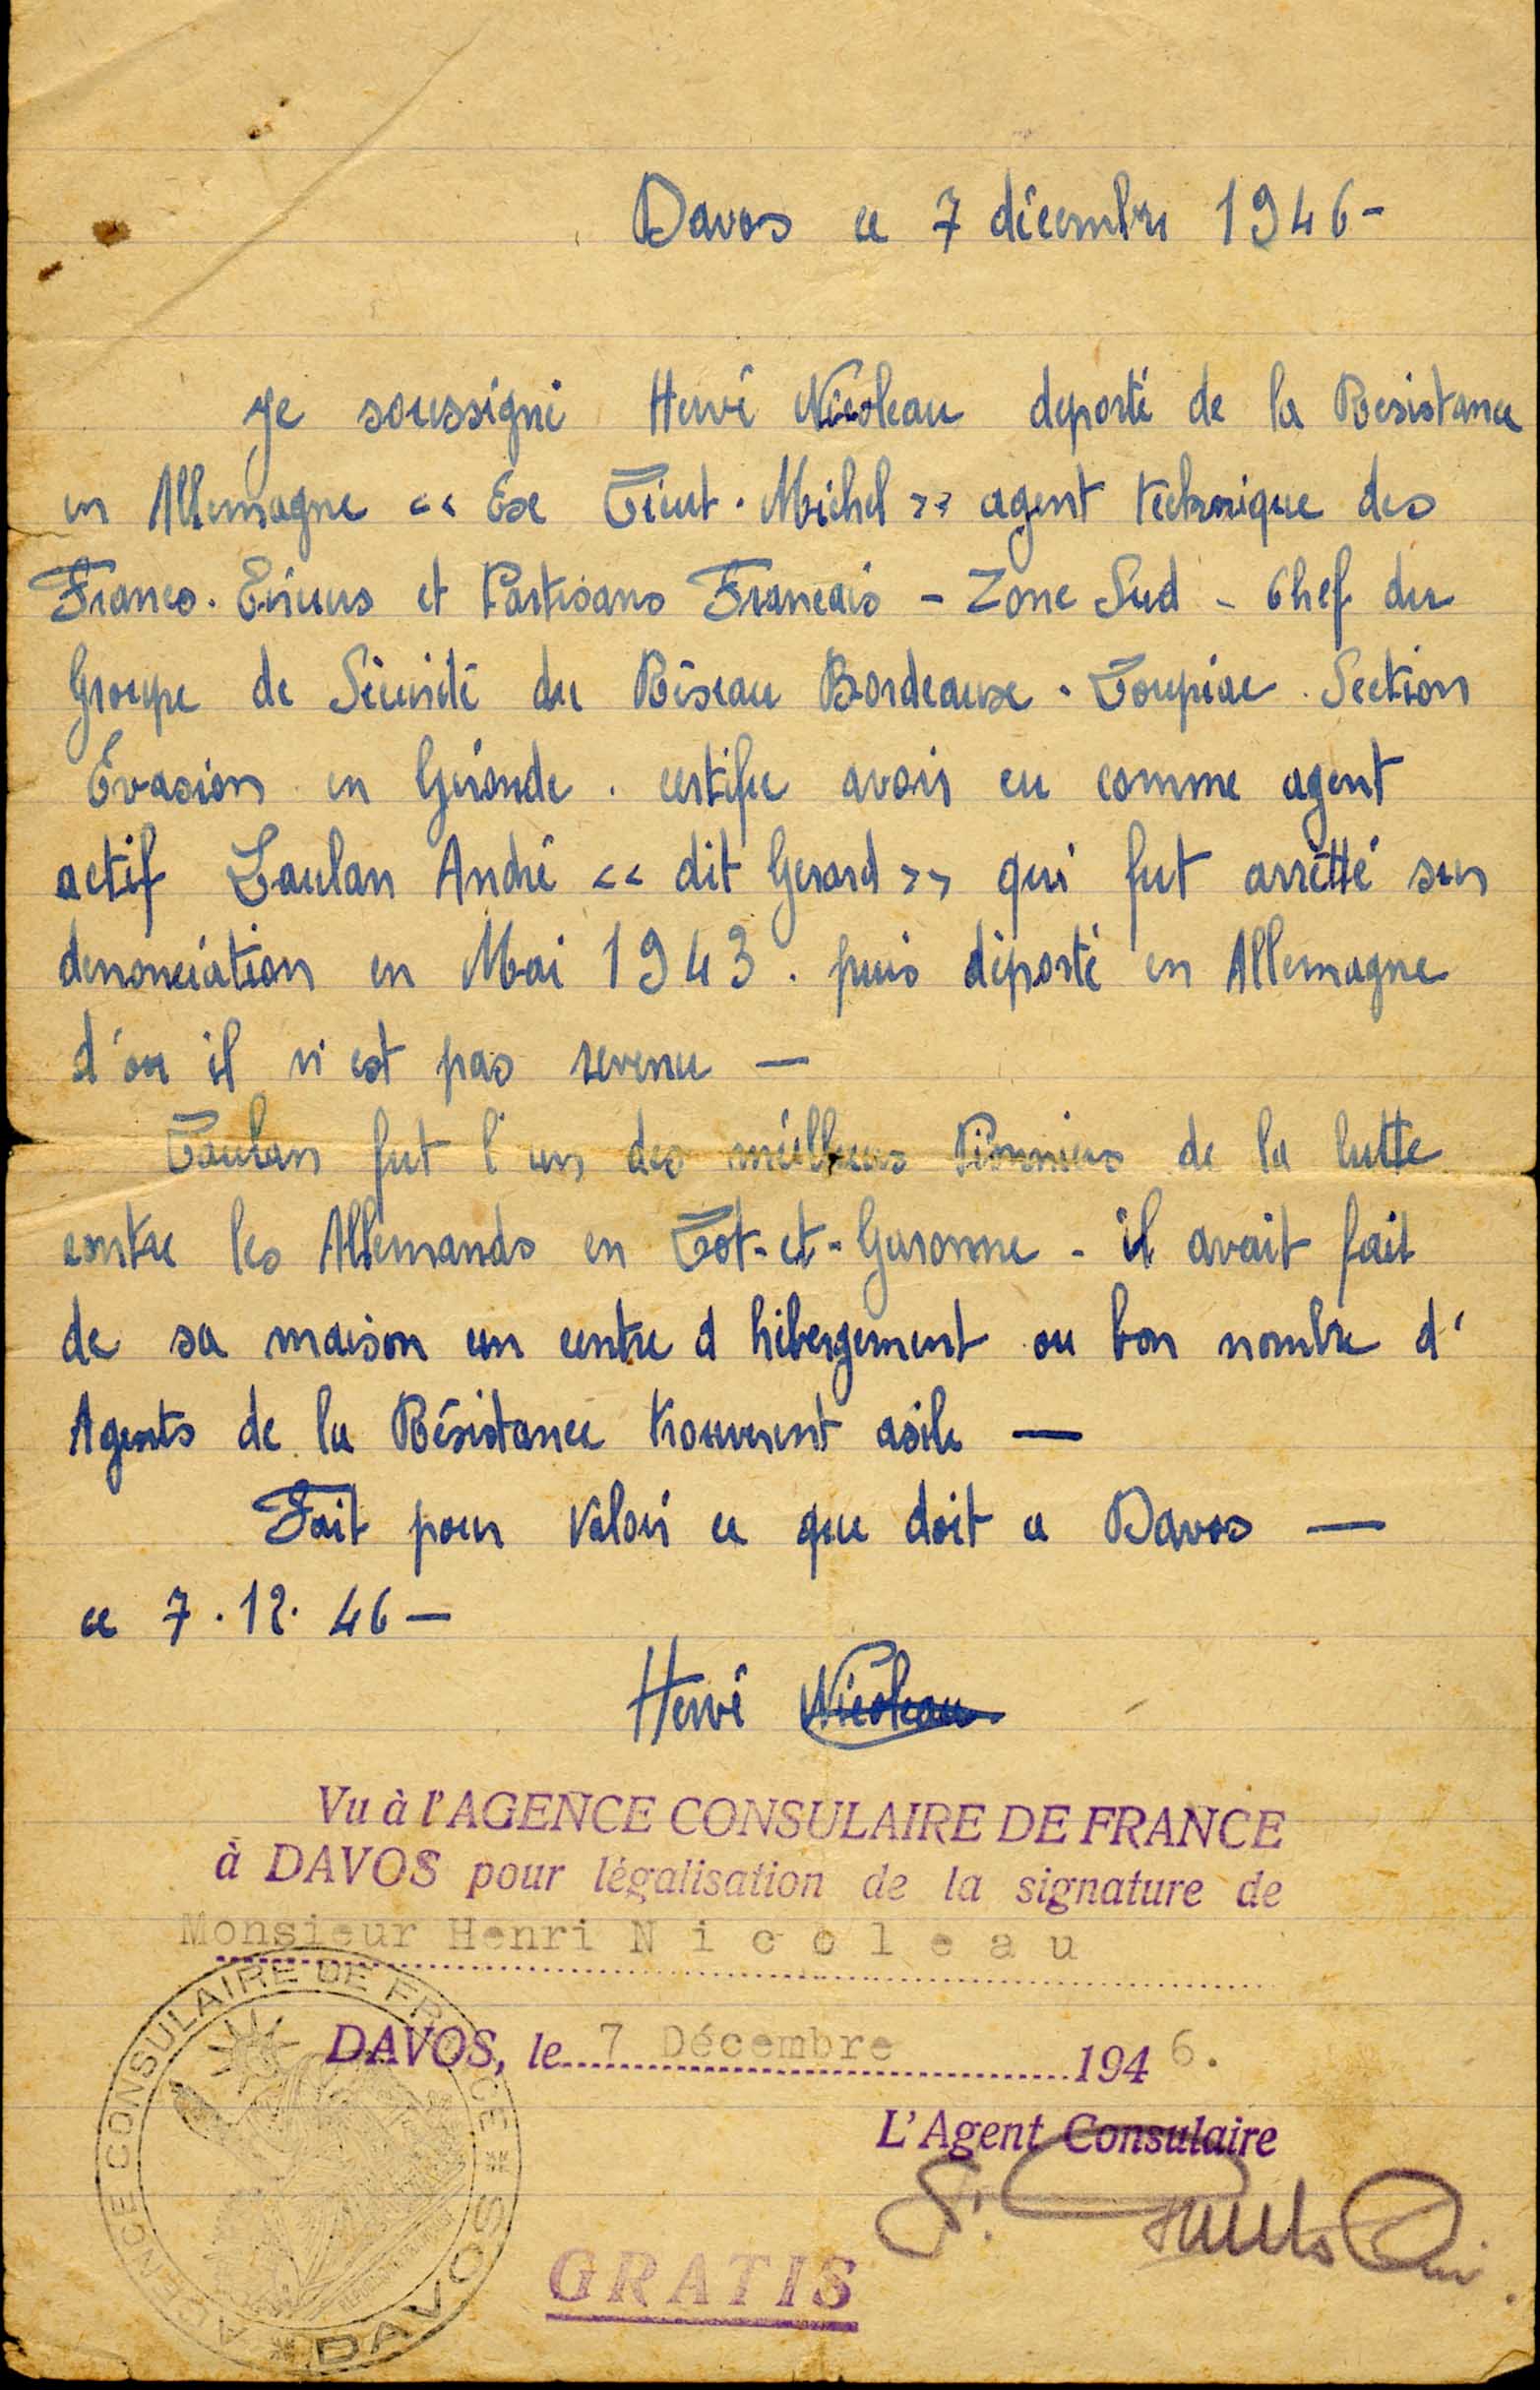 Davos ce 7 décembre 1946 -
Je soussigné Hervé Nicoleau deporté de la Resistance
en Allemagne << Ex Lieut. Michel >> agent technique des
Francs. Tireurs et Partisans Francais - Zone Sud - Chef du
Groupe de Sécurité du Réseau Bordeaux - Loupiac. Section
Evasion en Gironde. certifie avoir eu comme agent
actif Laulan André << dit Gerard >> qui fut arrêtté sur
denonciation en Mai 1943. puis déporté en Allemagne
d'ou il n'est pas revenu —
Laulan fut l'un des meilleurs Pionniers de la lutte
contre les Allemands en Lot-et-Garonne - il avait fait
de sa maison un centre d hébergement ou bon nombre d'
Agents de la Résistance trouverent asile —
Fait pour valoir ce que doit a Davos —
ce 7.12.46 —
Hervé Nicoleau
Vu à l'AGENCE CONSULAIRE DE FRANCE
à DAVOS pour légalisation de la signature de
Monsieur Henri Nicoleau
DAVOS, le 7 Décembre 1946.
L'Agent Consulaire
GRATIS
AGENCE CONSULAIRE DE FRANCE * DAVOS *